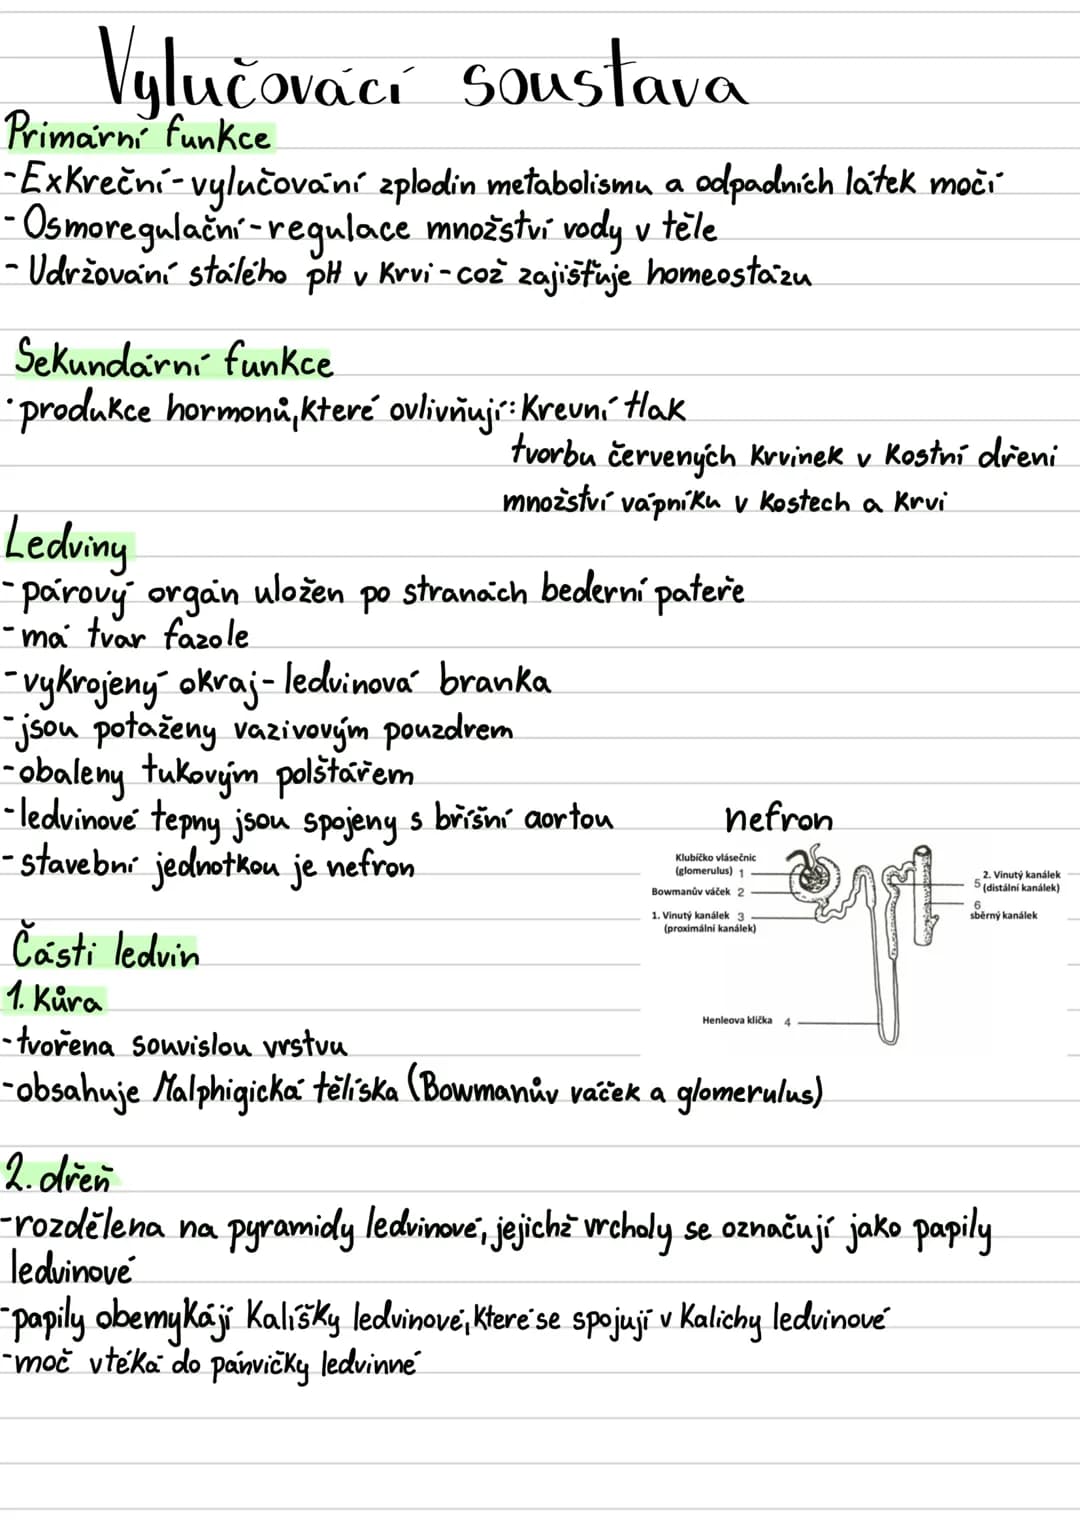 Vylučovací soustava
Primární funkce
-Exkreční-vylučování zplodin metabolismu a odpadních látek močí
-Osmoregulační-regulace množství vody v těle
-Udržování stálého pH v krvi-což zajišťuje homeostázu
Sekundární funkce
·produkce hormonů,které ovlivňují: Krevní tlak
tvorbu červených krvinek v kostní dřeni
množství vápníku v kostech a krvi
Ledviny
-párový orgán uložen po stranách bederní páteře
-má tvar fazole
-vykrojený okraj-ledvinová branka
-jsou potaženy vazivovým pouzdrem
-obaleny tukovým polštářem
-ledvinové tepny jsou spojeny s břišní aortou
-stavební jednotkou je nefron
nefron
Klubíčko vlásečnic
(glomerulus) 1
Bowmanův váček 2
1. Vinutý kanálek 3
(proximální kanálek)
Henleova klička 4
2. Vinutý kanálek
5 (distální kanálek)
6
sběrný kanálek
Části ledvin
1. Kůra
-tvořena souvislou vrstvu
-obsahuje Malphigická tělíska (Bowmanův váček a glomerulus)
2. dřeň
-rozdělena na pyramidy ledvinové, jejichž vrcholy se označují jako papily
ledvinové
-papily obemykají kalíšky ledvinové, které se spojují v kalichy ledvinové
-moč vtéká do pánvičky ledvinné